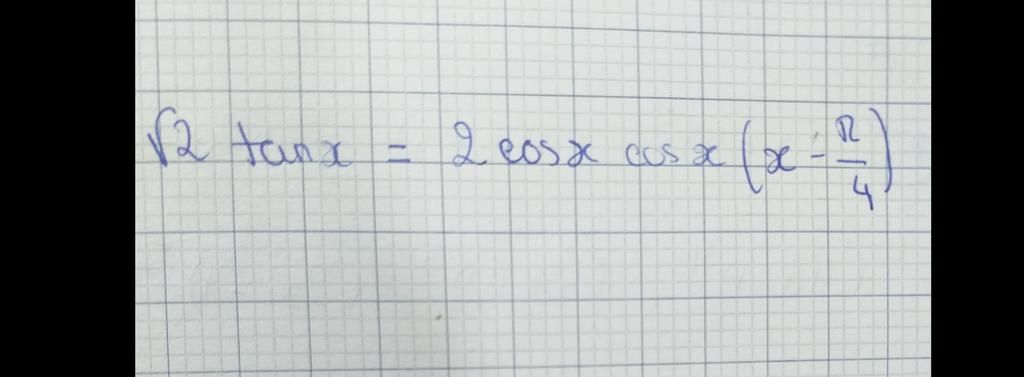 √2 tan x = 2 cos x cos x (x - π/4)